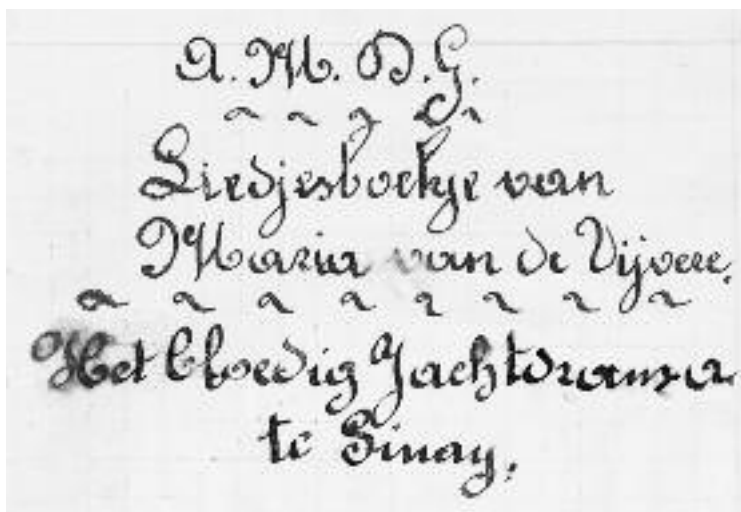 A. M. D. G.
Liedjesboekje van
Maria van de Vijvere.
Het bloedig Jachtdrama
te Sinay,